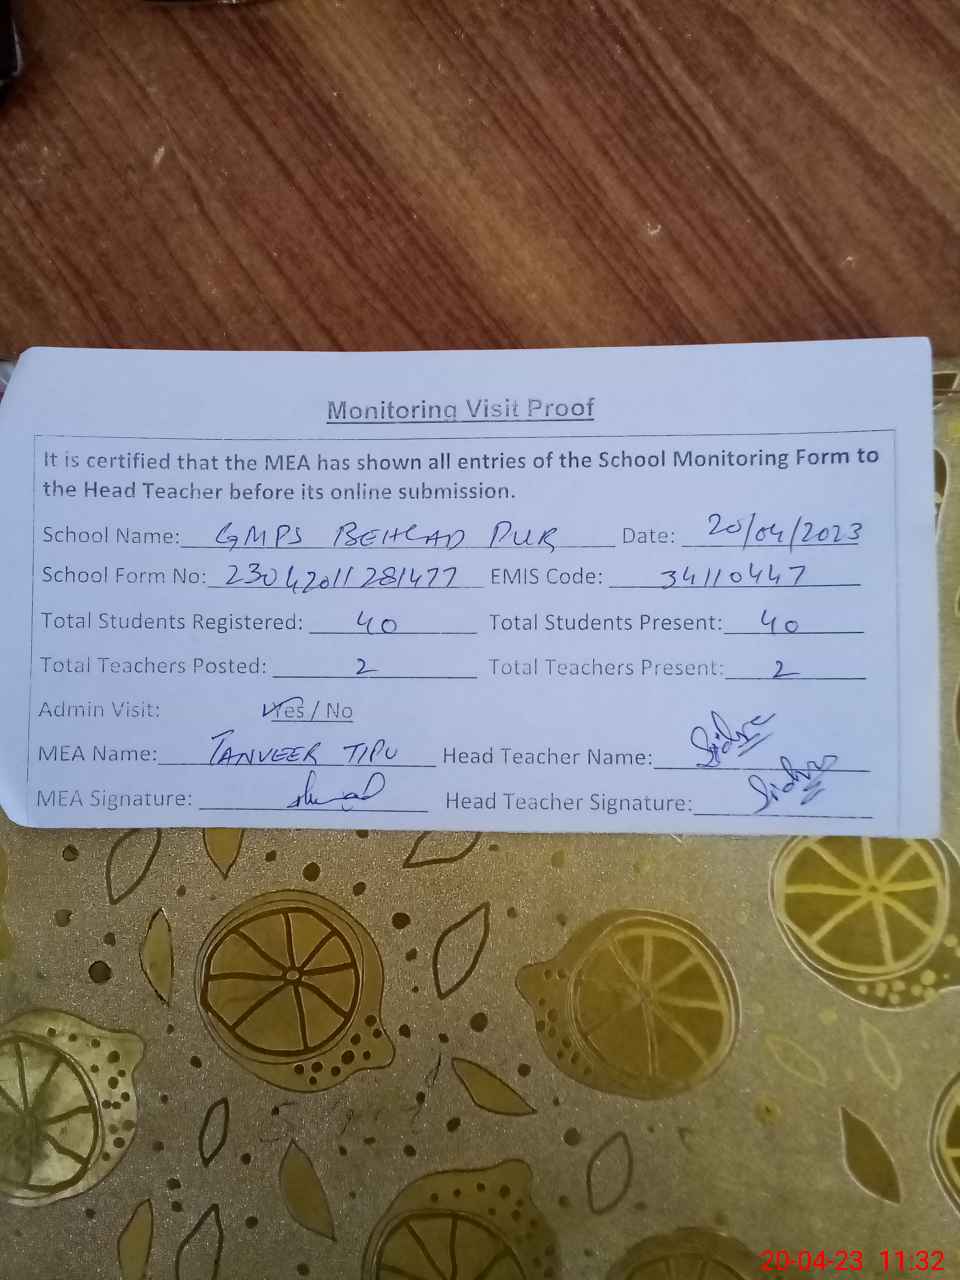 Monitoring Visit Proof
It is certified that the MEA has shown all entries of the School Monitoring Form to
the Head Teacher before its online submission.
School Name: GMPS BEHLAD PUR Date: 20/04/2023
School Form No: 23042011281477 EMIS Code: 34110447
Total Students Registered: 40 Total Students Present: 40
Total Teachers Posted: 2 Total Teachers Present: 2
Admin Visit: Yes / No
MEA Name: TANVEER TIPU Head Teacher Name: Sidra
MEA Signature: Head Teacher Signature: Sidra
20-04-23 11:32